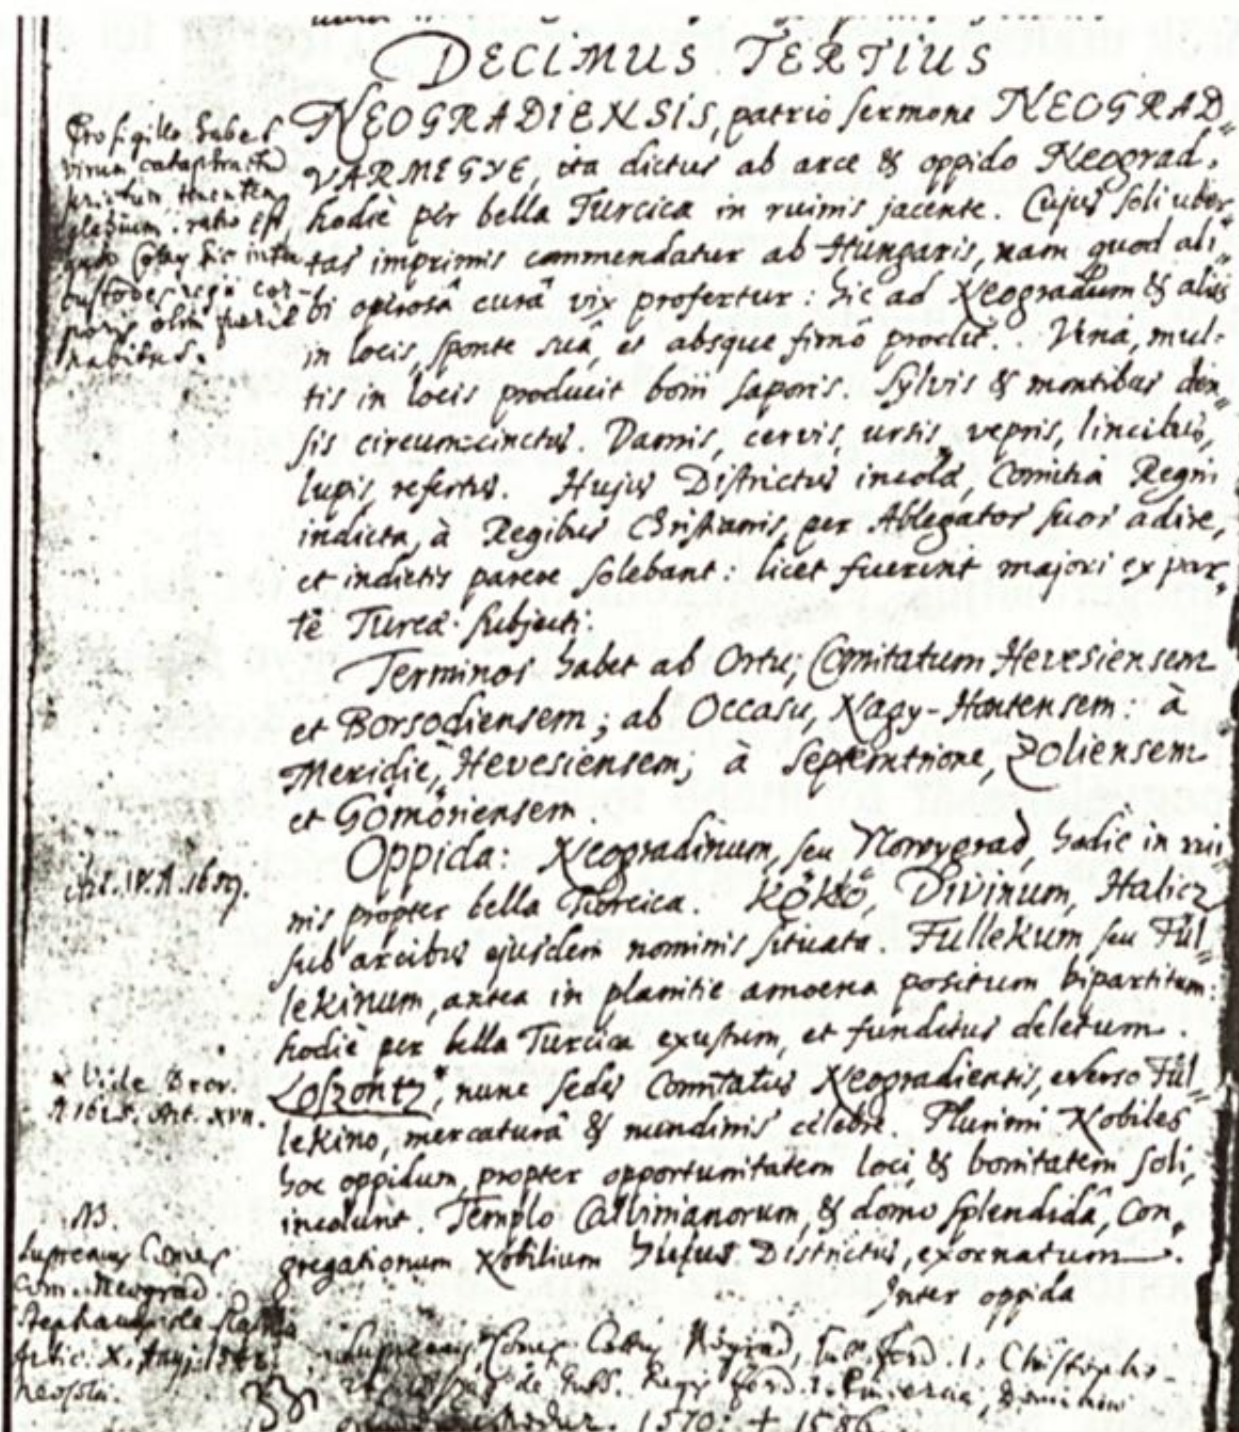 DECIMUS TERTIUS
NEOGRADIENSIS, patrio sermone NEOGRAD„
VARMEGYE, ita dictus ab arce & oppido Neograd,
hodiè per bella Turcica in ruinis jacente. Cujus soli uber„
tas imprimis commendatur ab Hungaris, nam quod ali„
bi operosâ curâ vix profertur: hic ad Neogradum & aliis
in locis, sponte suâ, et absque fimô prodit. Vina, mul„
tis in locis producit boni saporis. Sylvis & montibus den„
sis circumcinctus. Damis, cervis, ursis, vepris, lincibus,
lupis, refertus. Hujus Districtus incolæ, Comitia Regni
indicta, à Regibus Christianis, per Ablegatos suos adire,
et indictis parere solebant: licet fuerint majori ex par„
te Turcæ subjecti.
Terminos habet ab Ortu, Comitatum Hevesiensem
et Borsodiensem; ab Occasu, Nagy-Hontensem: à
Meridie, Hevesiensem; à Septemtrione, Zoliensem
et Gömöriensem.
Oppida: Neogradinum, seu Nowygrad, hodiè in rui
nis propter bella Turcica. Kökö, Divinum, Halicz
sub arcibus ejusdem nominis situata. Fullekum, seu Fül„
lekinum, antea in planitie amoena positum bipartitum:
hodiè per bella Turcica exustum, et funditus deletum.
Loszontz*, nunc sedes Comitatus Neogradiensis, everso Fül„
lekino, mercaturâ & nundinis celebre. Plurimi Nobiles
hoc oppidum, propter opportunitatem loci, & bonitatem soli,
incolunt. Templo Calvinianorum, & domo splendidâ, Con„
gregationum Nobilium hujus Districtus, exornatum.
Inter oppida
Pro sigillo habet
virum cataphractum
tenentem
ratio est,
custodes regii cor-
poris olim
habitus.
Art. IV. A.
* Vide
A 1625. Art. XVII.
NB.
Supremus Comes
Com. Neograd.
Stephanus de
Artic. X.
Supremus Comes
Ferd. 1. Christoph
de
1570. + 1586.